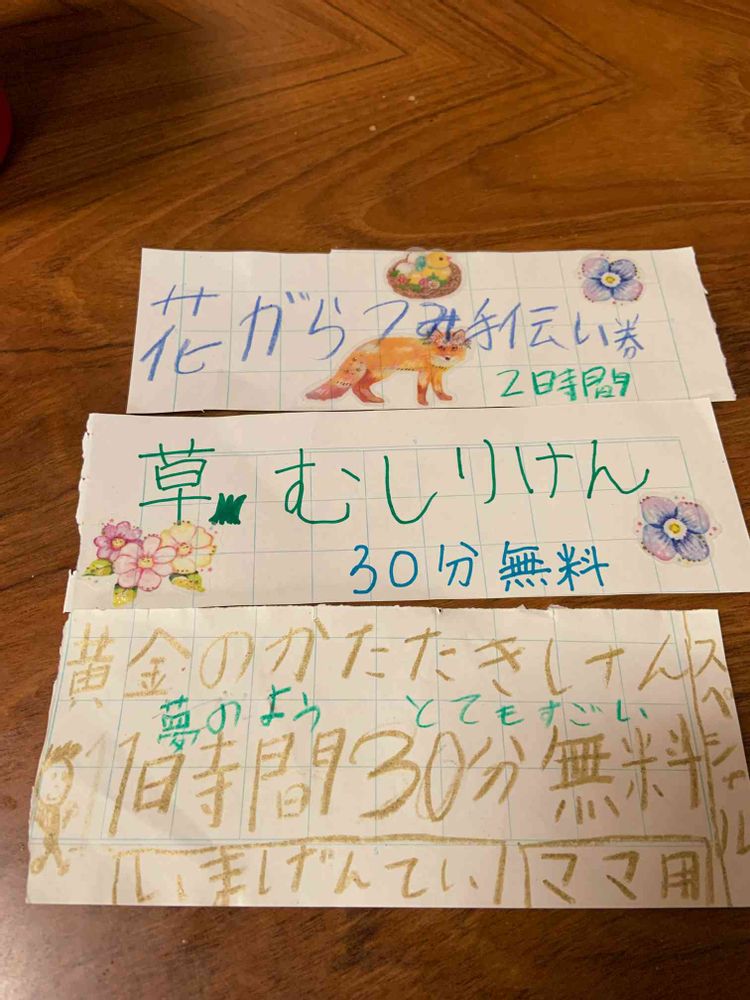 花がらつみ手伝い券
2日時間
草むしりけん
30分無料
黄金のかたたきけん
スペシャル
夢のよう とてもすごい
1日時間30分無料
いまげんてい
ママ用